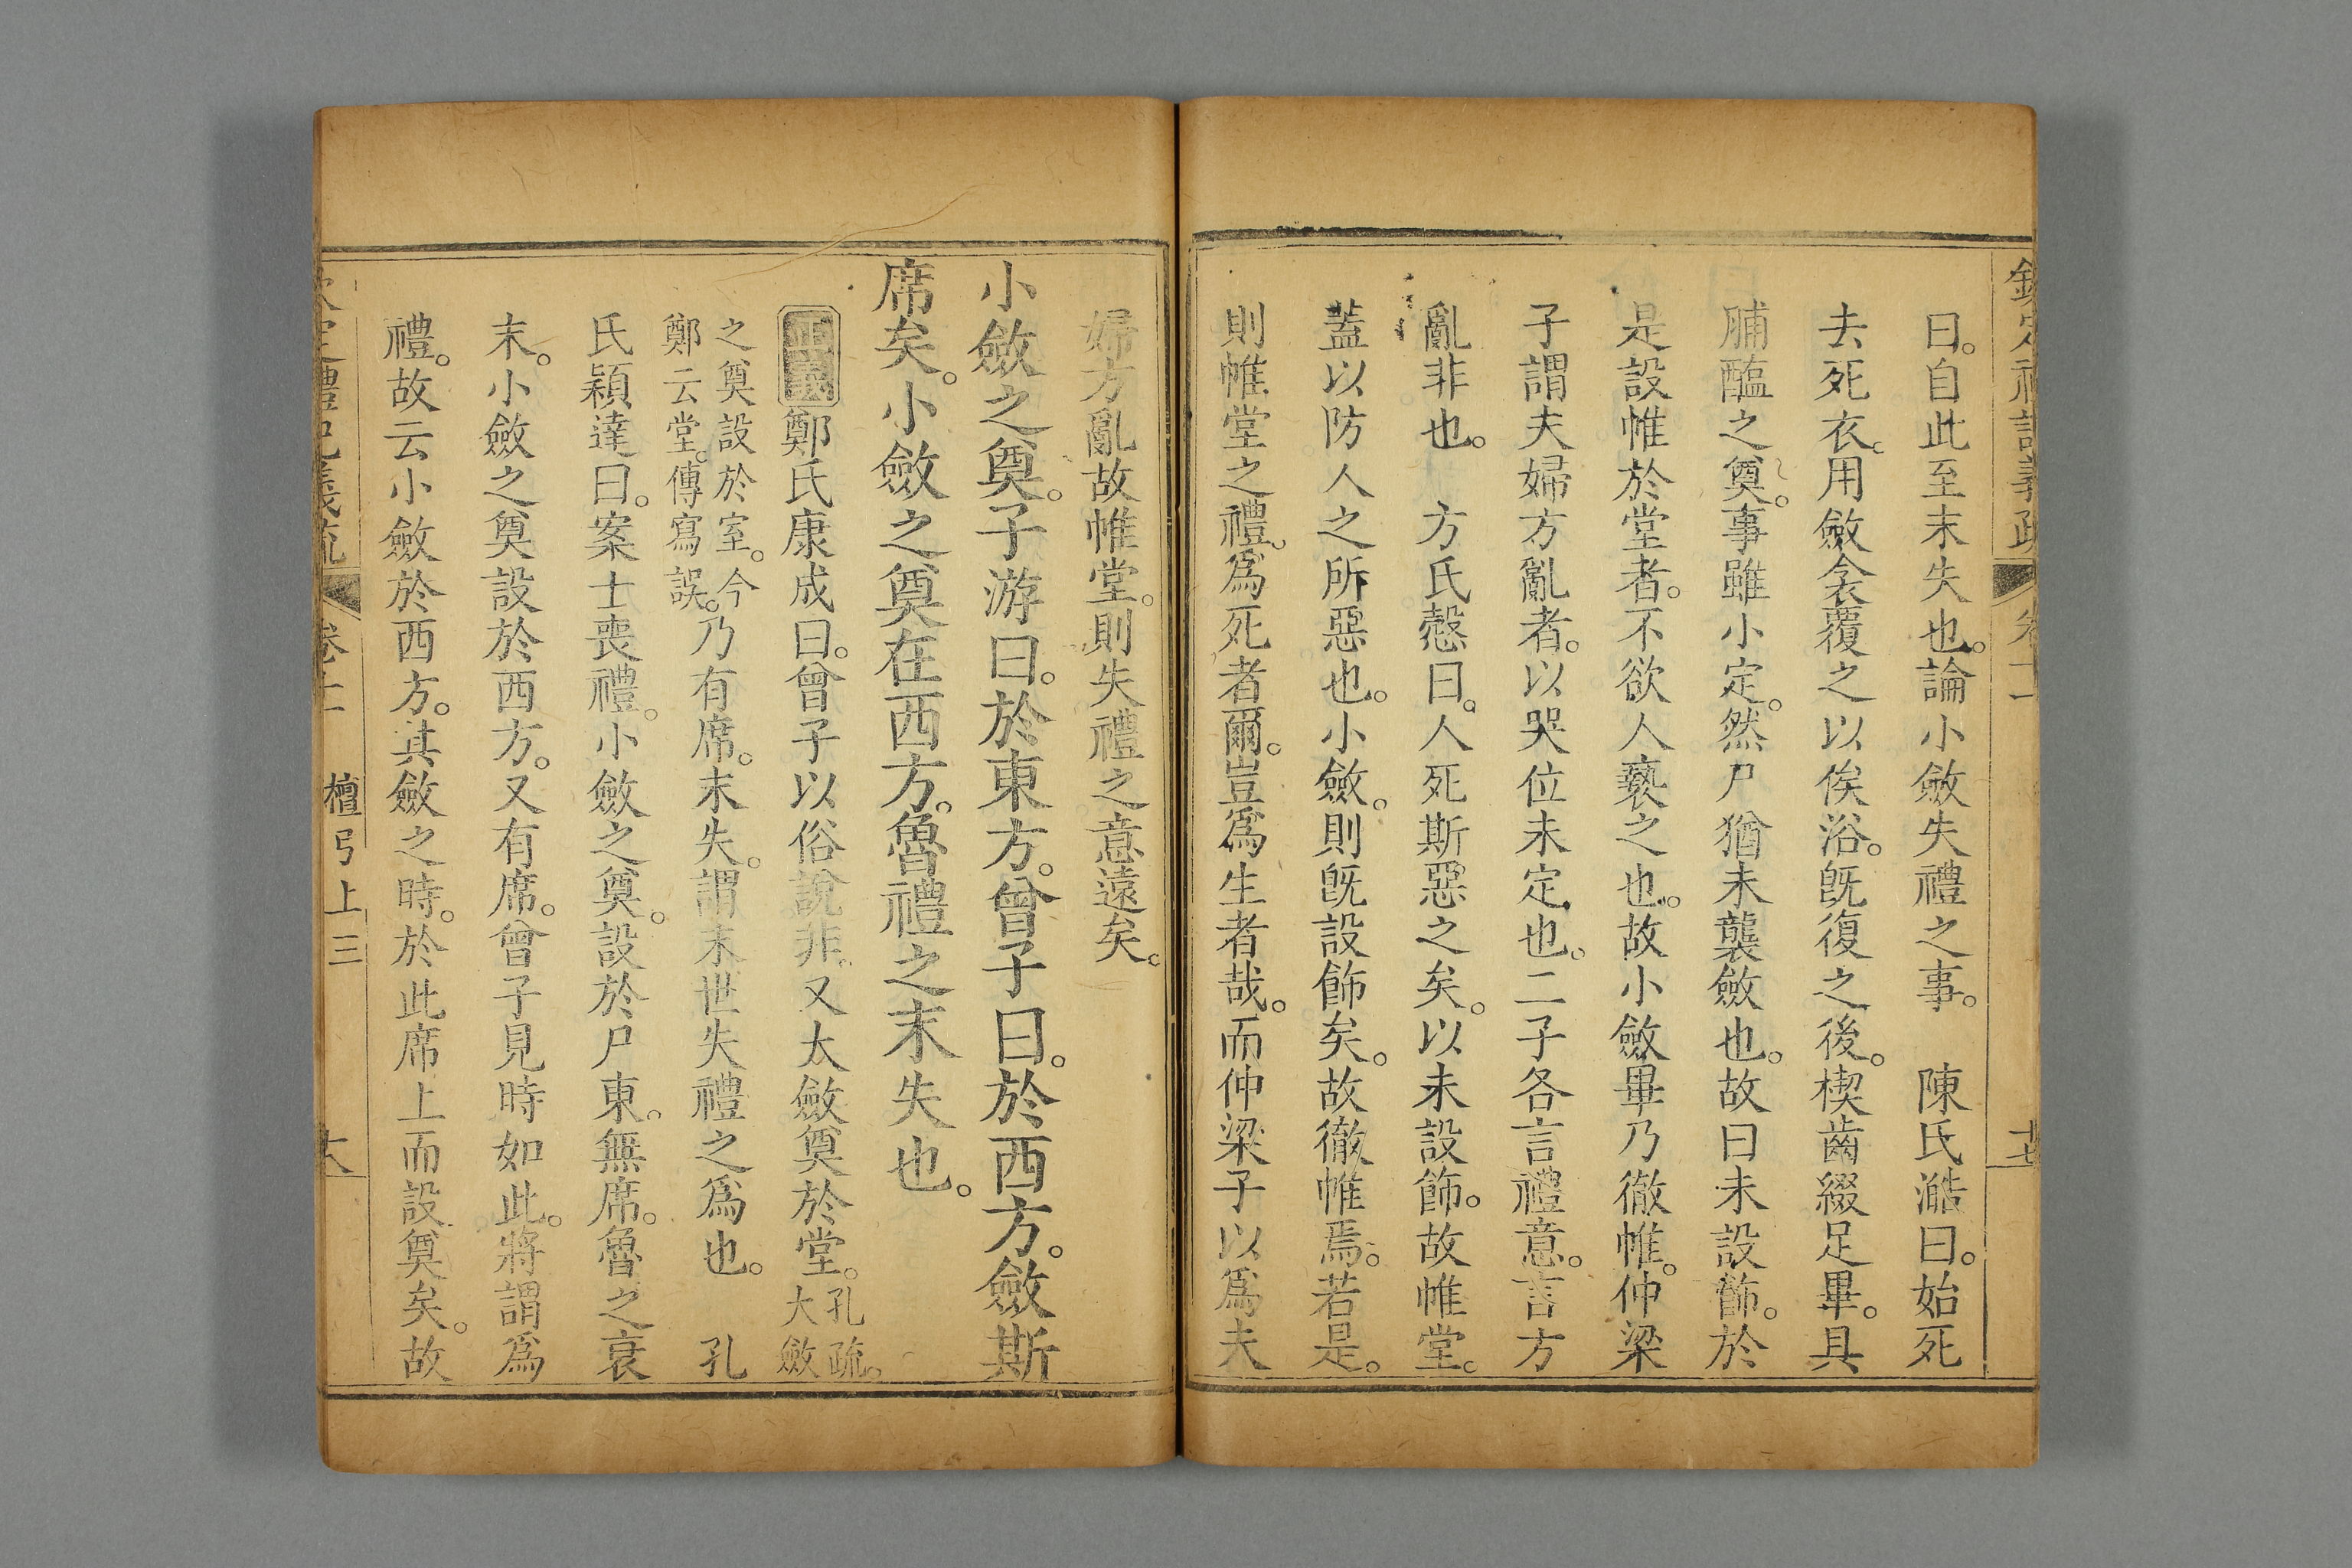 曰。自此至末失也。論小斂失禮之事。　陳氏澔曰。始死
去死衣。用斂衾覆之以俟浴。旣復之後。楔齒綴足畢。具
脯醢之奠。事雖小定。然尸猶未襲斂也。故曰未設飾。於
是設帷於堂者。不欲人褻之也。故小斂畢乃徹帷。仲梁
子謂夫婦方亂者。以哭位未定也。二子各言禮意。言方
亂非也。　方氏慤曰。人死斯惡之矣。以未設飾。故帷堂。
蓋以防人之所惡也。小斂。則旣設飾矣。故徹帷焉。若是。
則帷堂之禮。爲死者爾。豈爲生者哉。而仲梁子以爲夫
婦方亂故帷堂。則失禮之意遠矣。
小斂之奠。子游曰。於東方。曾子曰。於西方。斂斯
席矣。小斂之奠在西方。魯禮之末失也。
正義鄭氏康成曰。曾子以俗說非。又大斂奠於堂。孔疏。大斂
之奠設於室。今鄭云堂。傳寫誤。乃有席。末失。謂末世失禮之爲也。　孔
氏穎達曰。案士喪禮。小斂之奠。設於尸東。無席。魯之衰
末。小斂之奠設於西方。又有席。曾子見時如此。將謂爲
禮。故云小斂於西方。其斂之時。於此席上而設奠矣。故
定禮記義疏　卷十一　檀弓上三　大